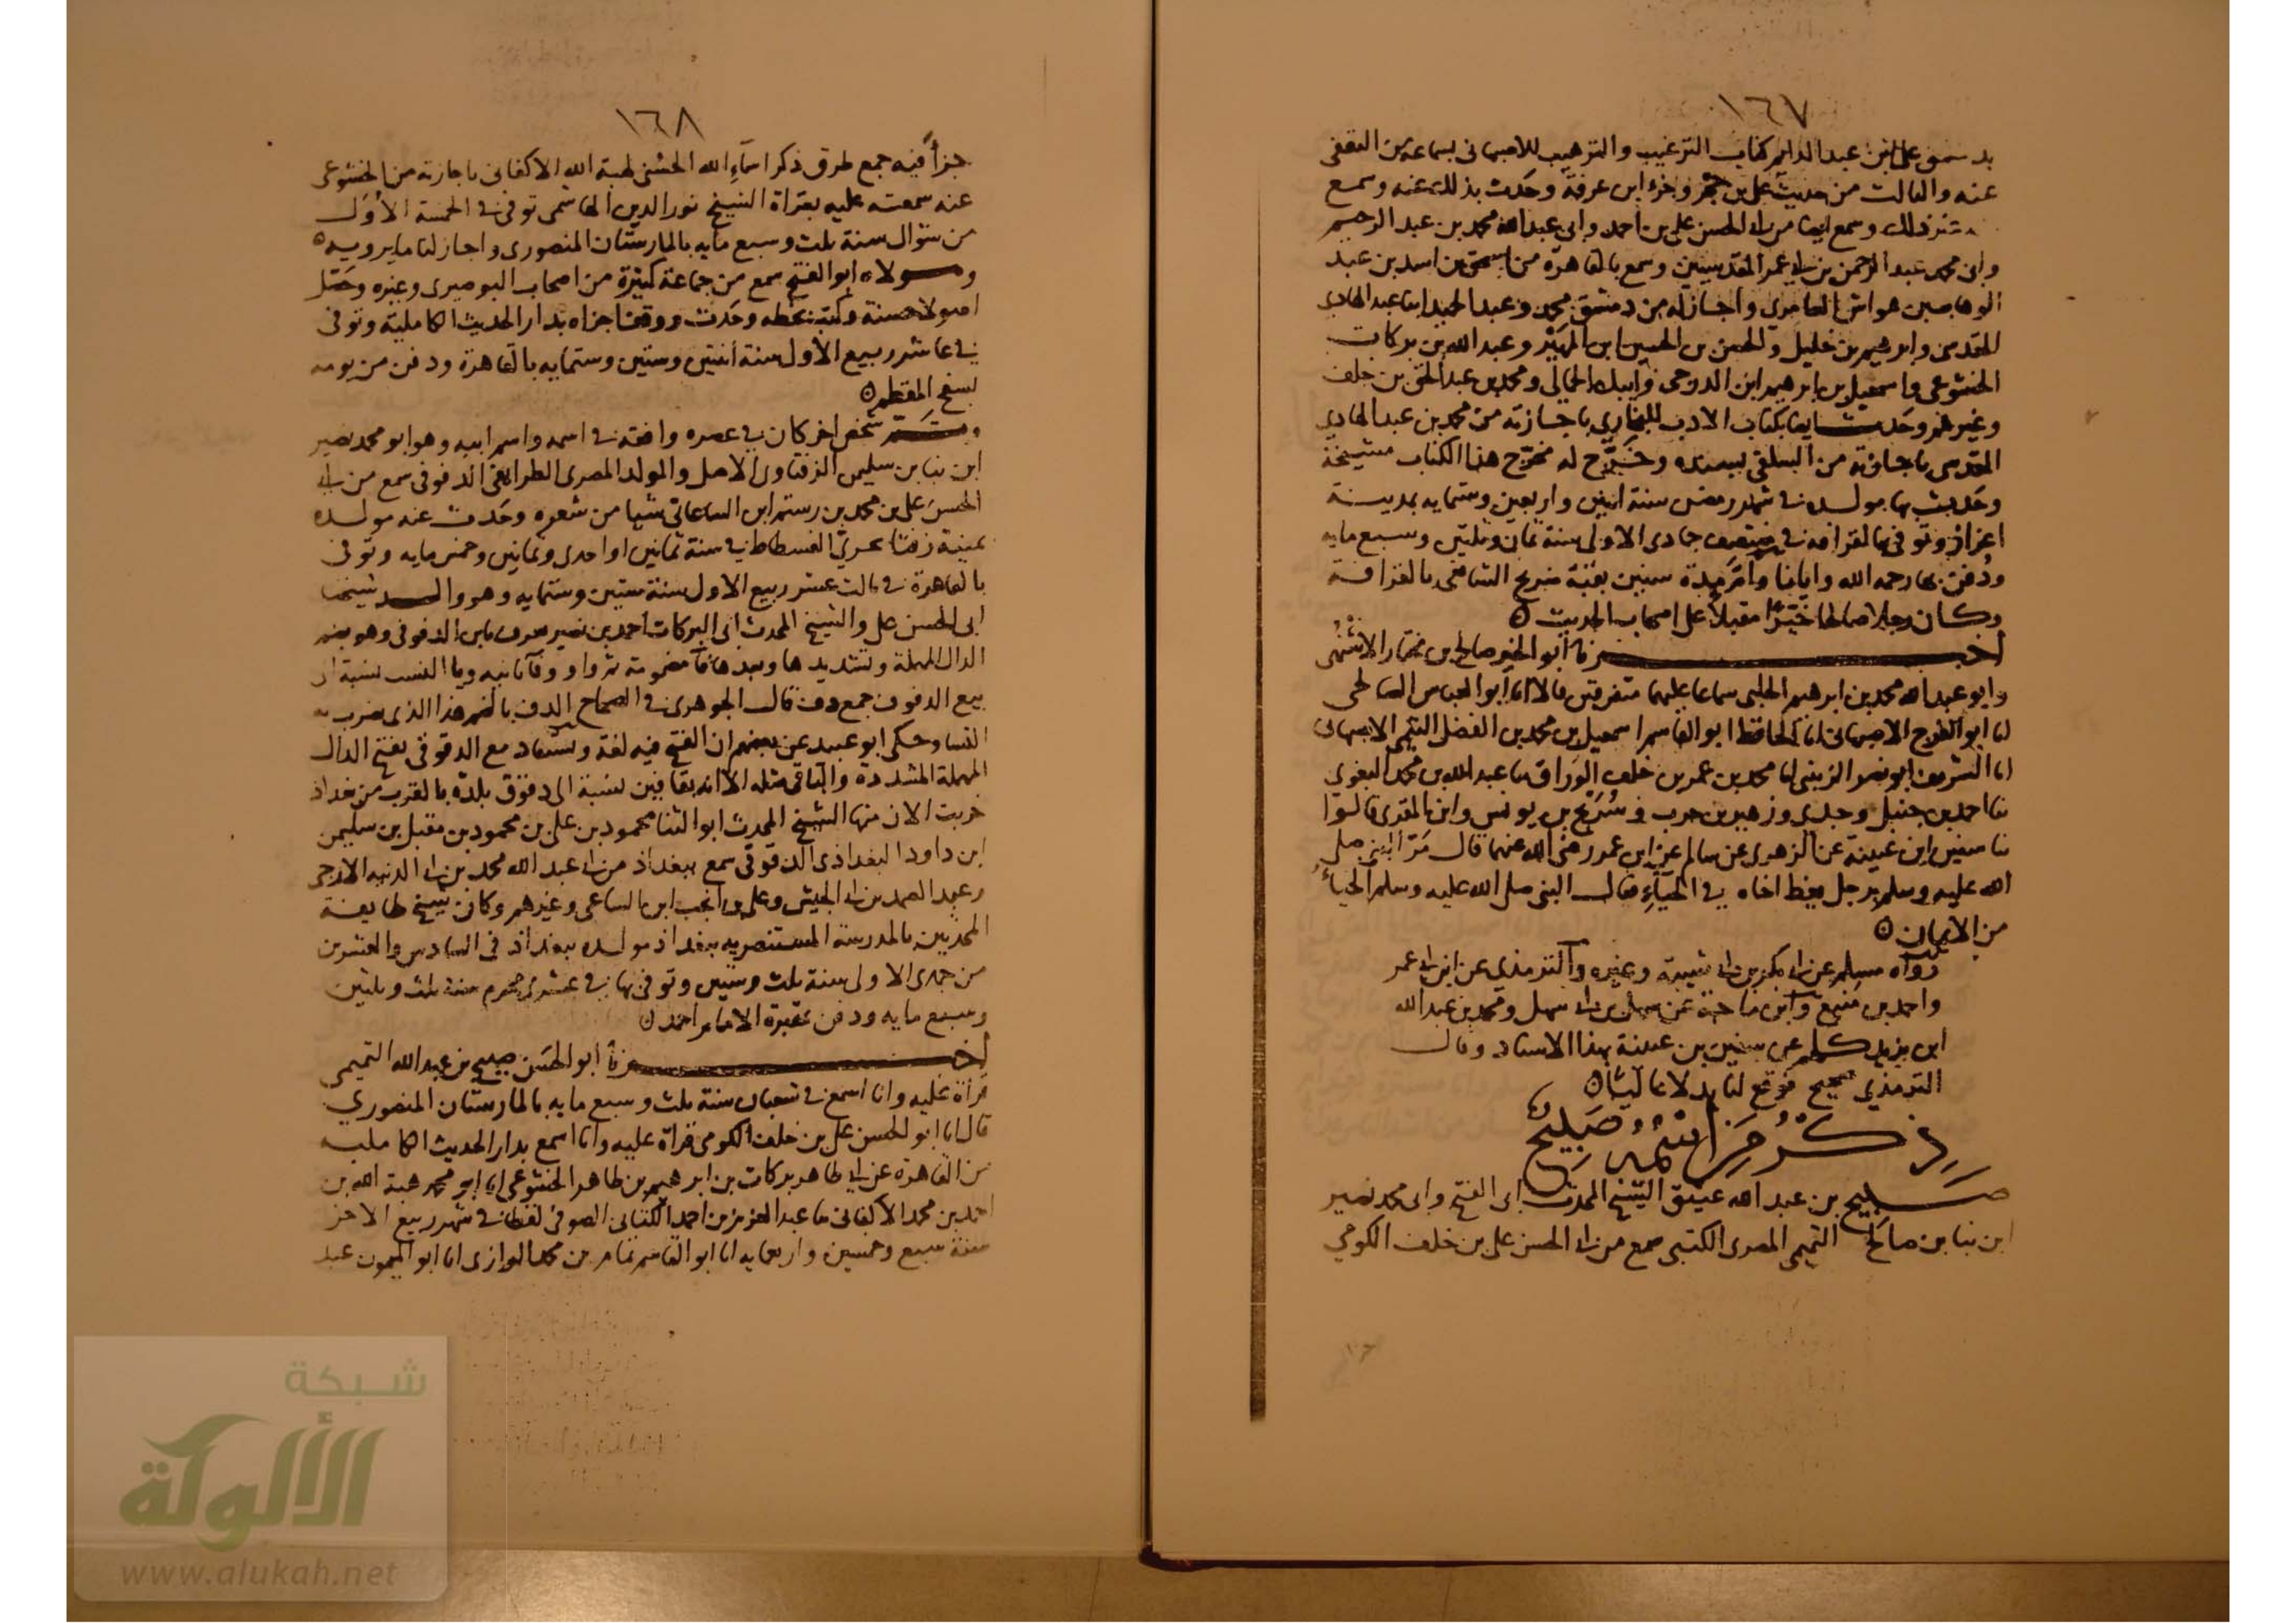 ١٦٧
عبد الدايم كتاب الترغيب والترهيب للاصبهانى بسماعه من الثقفى
عنه والثالث من حديث على بن حجر وجزء ابن عرفة وحدث بذلك عنه وسمع
ذلك وسمع ايضا من ابى الحسن على بن احمد وابى عبد الله محمد بن عبد الرحيم
وابى محمد عبد الرحمن بن ابى عمر المقدسيين وسمع بالقاهرة من اسمعيل بن اسد بن عبد
العامرى واجاز له من دمشق محمد وعبد الحميد ابنا عبد الهادى
المقدسى وابرهيم بن خليل والحسن بن الحسين ابن المهير وعبد الله بن بركات
الخشوعى واسمعيل بن ابرهيم ابن الدرجى وايبك الجمالى ومحمد بن عبد الحق بن خلف
وغيرهم وحدث ايضا بكتاب الادب للبخارى باجازته من محمد بن عبد الهادى
المقدسى باجازته من السلفى بسنده وخرج له مخرج هذا الكتاب مشيخة
وحدث بها مولده فى شهر رمضن سنة اثنين واربعين وستمايه بمدينة
اعزاز وتوفى بالقرافة فى منتصف جمادى الاولى سنة ثمان وثلثين وسبع مايه
ودفن بها رحمه الله وايانا وام مدة سنين بقبة ضريح الشافعى بالقرافة
وكان رجلا صالحا خيرا مقبلا على اصحاب الحديث ه
اخبرنا ابو الخير صالح بن مختار الاشنهى
وابو عبد الله محمد بن ابرهيم الحلبى سماعا عليهما متفرقين قالا انا ابو العباس الصالحى
انا ابو الفرج الاصبهانى انا الحافظ ابو القاسم اسمعيل بن محمد بن الفضل التيمى الاصبهانى
انا الشريف ابو نصر الزينبى انا محمد بن عمر بن خلف الوراق نا عبد الله بن محمد البغوى
نا احمد بن حنبل وجدى وزهير بن حرب وسريج بن يونس وابن المقرى قالوا
نا سفين ابن عيينة عن الزهرى عن سالم عن ابن عمر رضى الله عنهما قال مر النبى صلى
الله عليه وسلم برجل يعظ اخاه فى الحياء فقال النبى صلى الله عليه وسلم الحياء
من الايمان ه
رواه مسلم عن ابى بكر بن ابى شيبة وغيره والترمذى عن ابن ابى عمر
واحمد بن منيع وابن ماجة عن سهل بن ابى سهل ومحمد بن عبد الله
ابن يزيد كلهم عن سفين بن عيينة بهذا الاسناد وقال
الترمذي صحيح فوقع لنا بدلا عاليا ه
ذكر من اسمه صبيح
صبيح بن عبد الله عتيق الشيخ المحدث ابى الفتح وابى محمد نصير
ابن نبا بن صالح التميمى المصرى الكتبى سمع من ابى الحسن على بن خلف الكومى
١٦٨
جزأ فيه جمع طرق ذكر اسماء الله الحسنى لهبة الله الاكفانى باجازته من الخشوعى
عنه سمعته عليه بقراة الشيخ نور الدين الهاشمى توفى فى الخمسة الاول
من شوال سنة ثلث وسبع مايه بالمارستان المنصورى واجاز لنا ما يرويه ه
ومولاه ابو الفتح سمع من جماعة كثيرة من اصحاب البوصيرى وغيره وحصل
اصولا حسنة وكتب بخطه وحدث ووقف اجزاه بدار الحديث الكاملية وتوفى
فى عاشر ربيع الاول سنة اثنتين وستين وستمايه بالقاهرة ودفن من يومه
بسفح المقطم ه
وثم شخص اخر كان فى عصره وافقه فى اسمه واسم ابيه وهو ابو محمد نصير
ابن نبا بن سليمن الزفتاوى الاصل والمولد المصرى الطرايفى الدفوفى سمع من ابى
الحسن على بن محمد بن رستم ابن الساعاتى شيا من شعره وحدث عنه مولده
بمنية زفتا الفسطاط فى سنة ثمانين او احدى وثمانين وخمس مايه وتوفى
بالقاهرة فى ثالث عشر ربيع الاول سنة ستين وستمايه وهو والد شيخنا
ابى الحسن على والشيخ المحدث ابى البركات احمد بن نصير بابن الدفوفى وهو بضم
الدال المهملة وتشديدها وبعدها فآ مضمومة ثم واو وفآ ثانيه ويا النسب نسبة الى
بيع الدفوف جمع دف قال الجوهرى فى الصحاح الدف بالضم هذا الذى يضرب به
النسا وحكى ابو عبيد عن بعضهم ان الفتح فيه لغة مع الدقوقى بفتح الدال
المهملة المشددة والباقى مثله الا انه بقافين نسبة الى دقوق بلدة بالقرب من بغداذ
خربت الان منها الشيخ المحدث ابو الثنا محمود بن على بن محمود بن مقبل بن سليمن
ابن داود البغداذى الدقوقى سمع ببغداذ من ابى عبد الله محمد بن
وعبد الصمد بن ابى الجيش وعلى بن انجب ابن الساعى وغيرهم وكان شيخ طايفة
المحدثين بالمدرسة المستنصريه ببغداذ مولده ببغداذ فى السادس والعشرين
من جمدى الاولى سنة ثلث وستين وتوفى بها فى محرم سنة ثلث وثلثين
وسبع مايه ودفن بمقبرة الامام احمد ه
اخبرنا ابو الحسن صبيح بن عبد الله التميمى
قراة عليه وانا اسمع فى شعبان سنة ثلث وسبع مايه بالمارستان المنصوري
قال انا ابو الحسن على بن خلف الكومى قراة عليه وانا اسمع بدار الحديث الكاملية
من القاهرة عن ابى طاهر بركات بن ابرهيم بن طاهر الخشوعى انا ابو محمد هبة الله بن
احمد بن محمد الاكفانى نا عبد العزيز بن احمد الكتانى الصوفى لفظا فى شهر ربيع الاخر
سنة سبع وخمسين واربعمايه انا ابو القاسم تمام بن محمد الرازى انا ابو الميمون عبد
شبكة
الألوكة
www.alukah.net